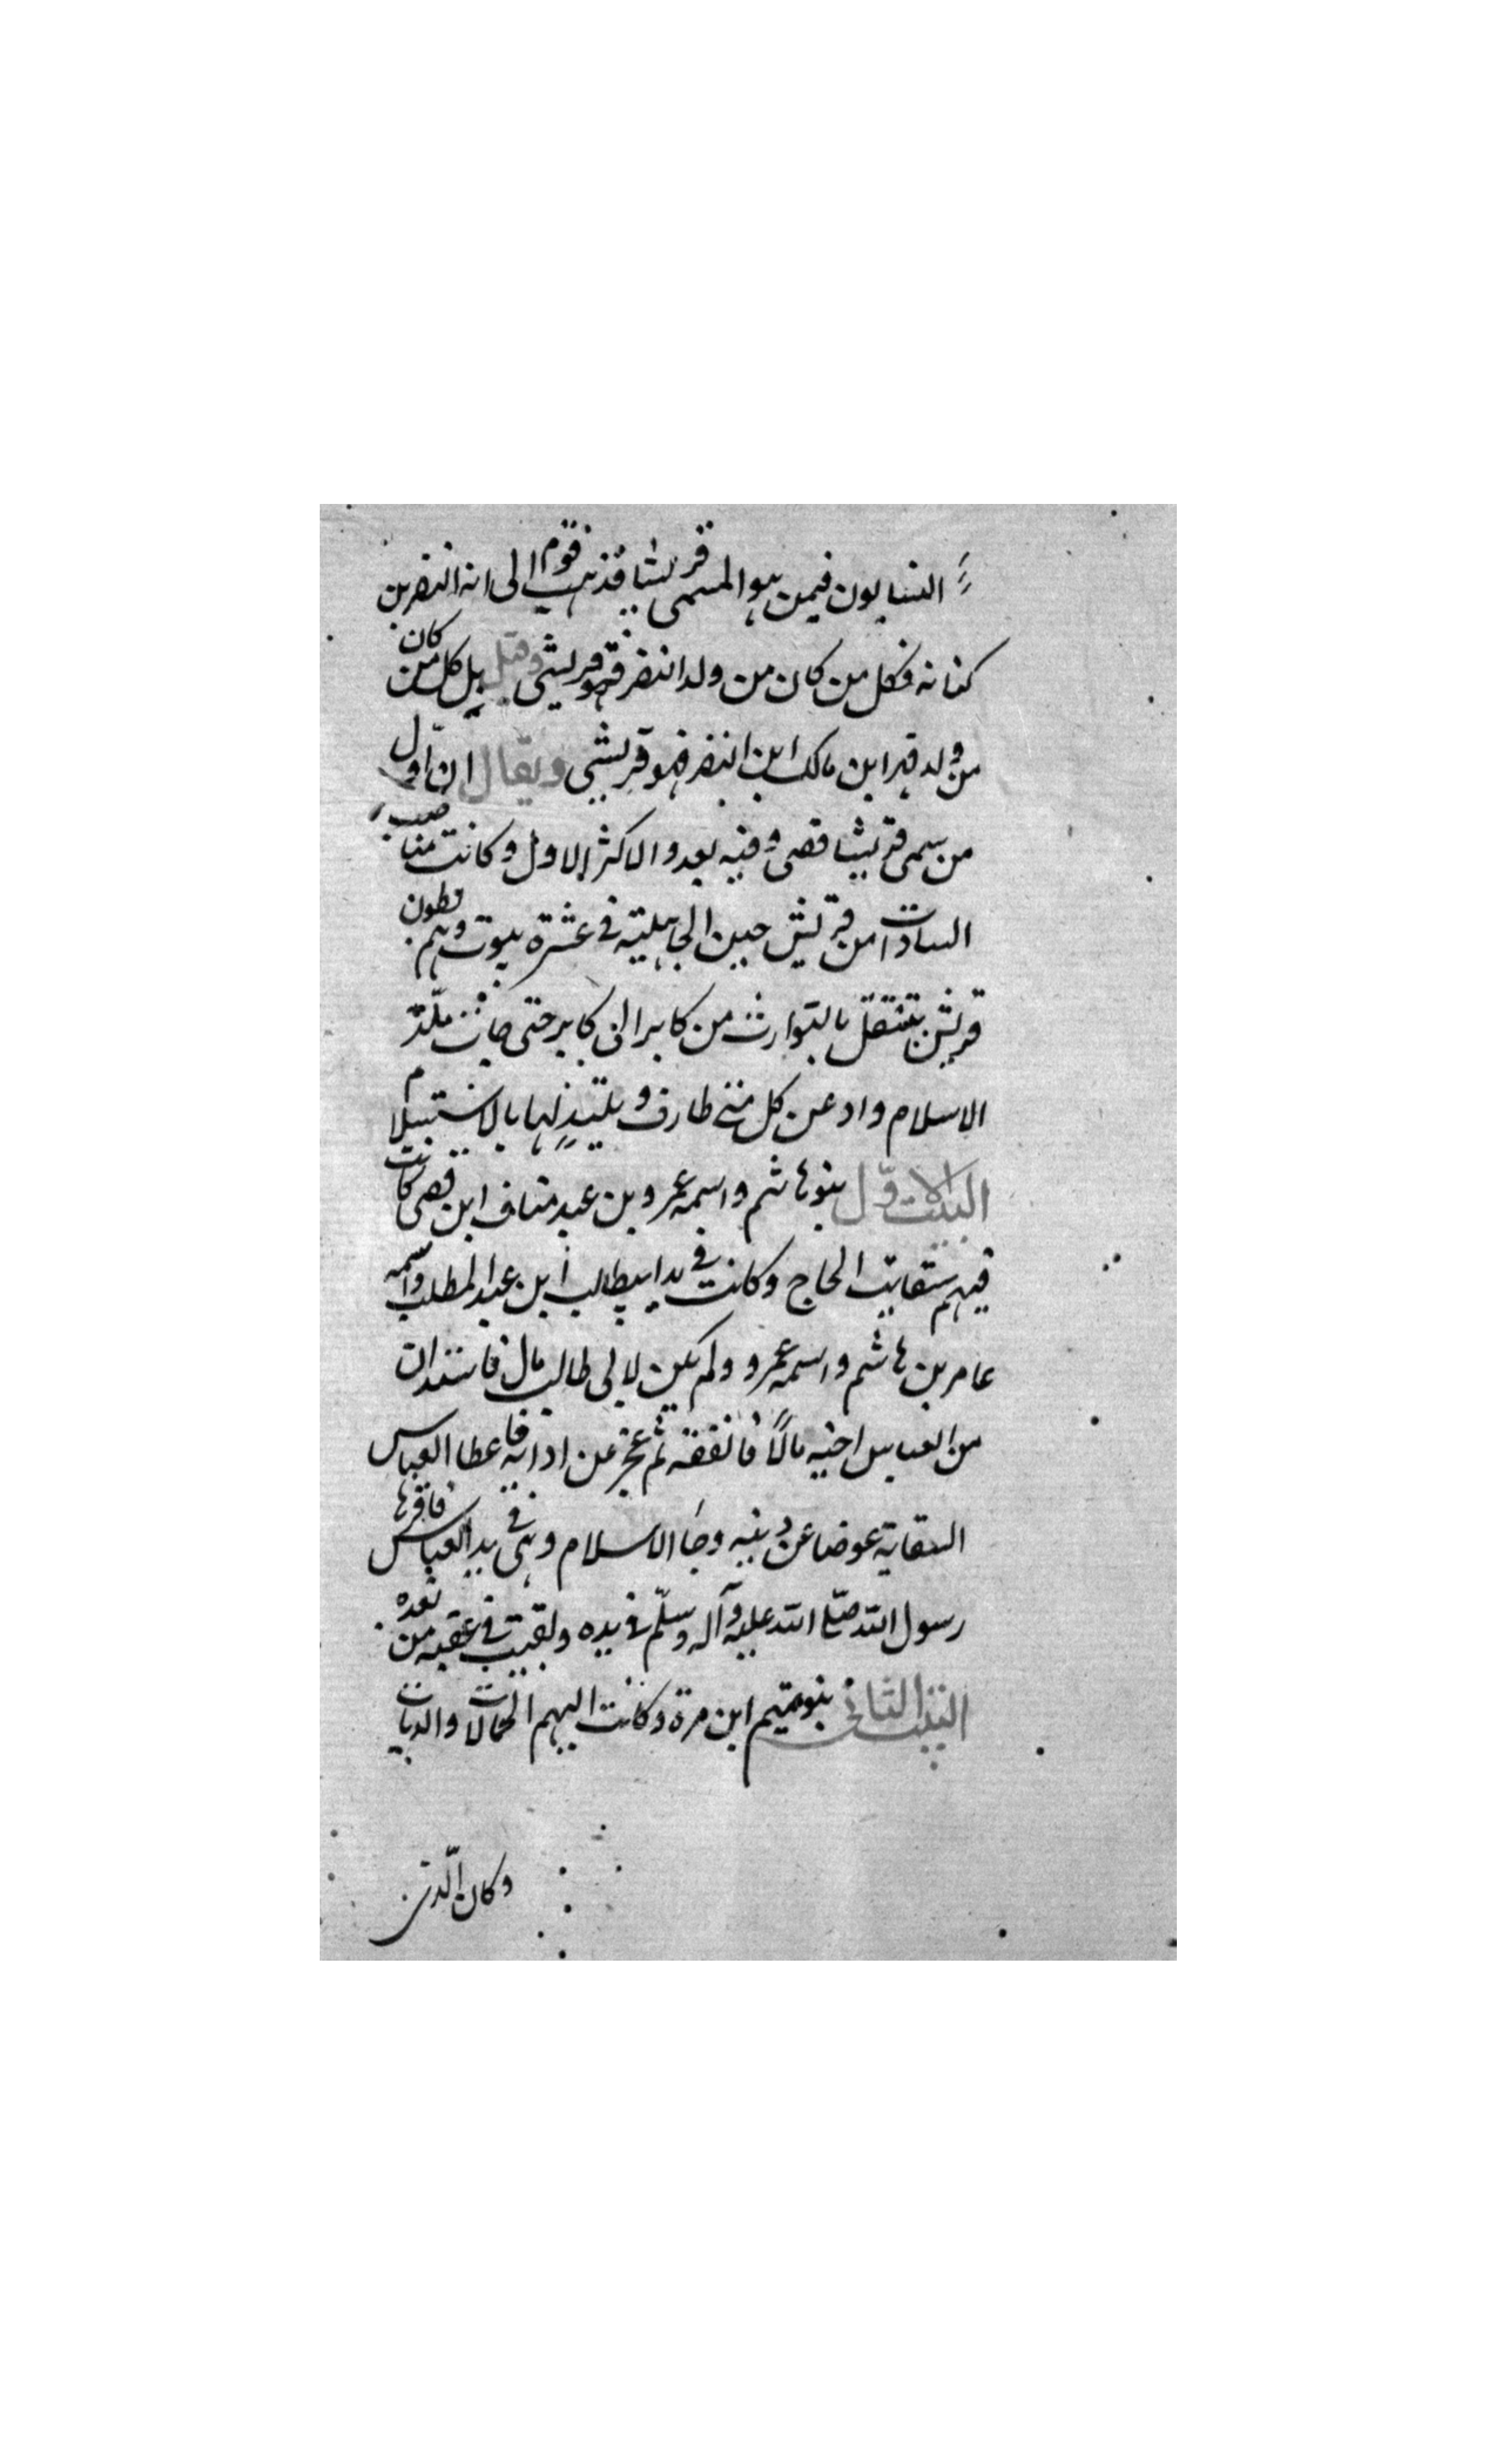 النسابون فيمن هو المسمى قريشا فذهب قوم الى انه النضر بن
كنانه فكل من كان من ولد النضر فهو قريشي وقيل بل كل من كان
من ولد فهر ابن مالك ابن النضر فهو قريشي ويقال ان اول
من سمى قريشا قصى وفيه بعد والاكثر الاول وكانت مناصب
السادات من قريش حين الجاهلية في عشرة بيوت وهم بطون
قريش تنتقل بالتوارث من كابر الى كابر حتى جاءت ملة
الاسلام واد عن كل منى طارف وتليد لها بالاستسلام
البيت الاول بنو هاشم واسمه عمرو بن عبد مناف ابن قصى كانت
فيهم سقايت الحاج وكانت في يد ابيطالب ابن عبد المطلب واسمه
عامر بن هاشم واسمه عمرو ولم يكن لابى طالب مال فاستدان
من العباس اخيه مالاً فانفقه ثم عجز عن ادائه فاعطا العباس
السقاية عوضا عن دينه وجا الاسلام وهى في يد العباس فاقرها
رسول الله صلى الله عليه وآله وسلّم في يده وبقيت في عقبه من بعده
البيت الثانى بنو تميم ابن مرة وكانت اليهم الحمالات والديات
وكان الذى